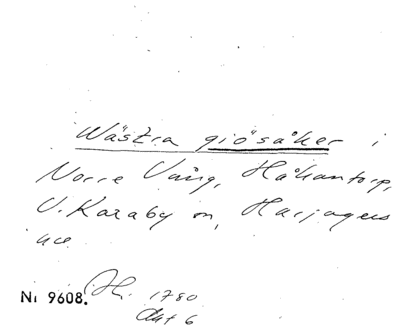 Wästra giösåker i
Norre Vång, Håkantorp,
V. Karaby sn, Harjagers
hd
Nr 9608. Jh. 1780
Akt 6